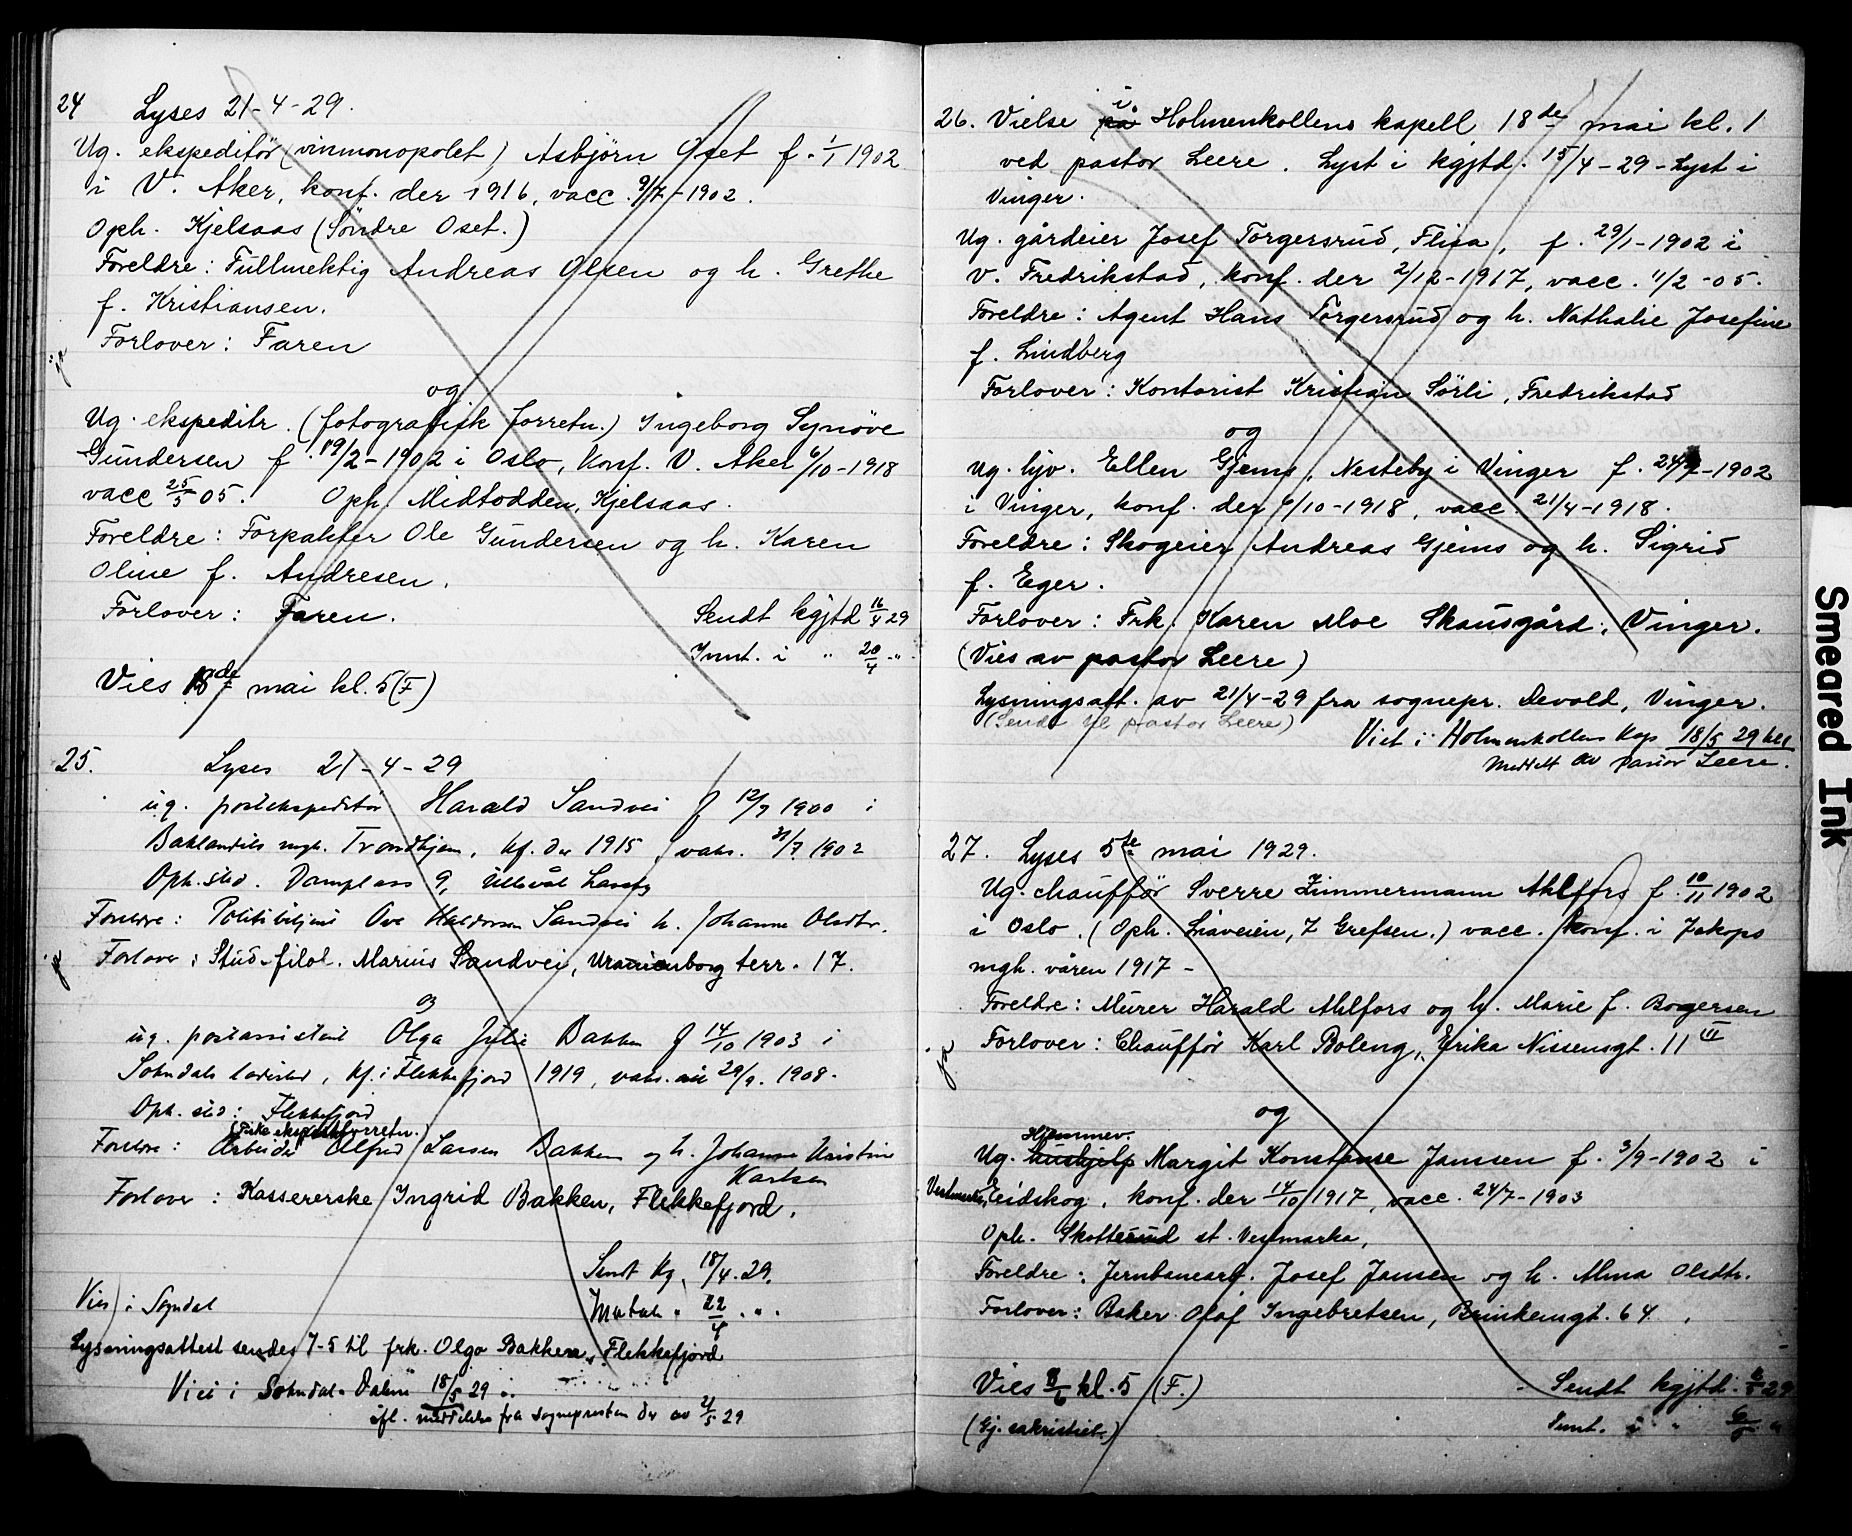 24 Lyses 21-4-29.
Ug. ekspeditör (vinmonopolet) Asbjörn Oset f. 1/1 1902
i V. Aker, konf. der 1916, vacc. 9/7-1902.
Oph. Kjelsaas (Söndre Oset.)
Foreldre: Fullmektig Andreas Olsen og h. Grethe
f. Kristiansen.
Forlover: Faren
og
Ug. ekspeditr. (fotografisk forretn.) Ingeborg Synöve
Gundersen f. 19/2-1902 i Oslo, konf. V. Aker 6/10-1918
vacc 25/5 05. Oph. Midtodden, Kjelsaas.
Foreldre: Forpakter Ole Gundersen og h. Karen
Oline f. Andresen.
Forlover: Faren.
Sendt kgjtd 16/4 29
Innt. i " 20/4 "
Vies mai kl. 5 (F)
25. Lyses 21-4-29
ug. postekspeditör Harald Sandvei f 12/7 1900 i
Baklandets mgh. Trondhjem, kf. der 1915, vaks. 31/7 1902
Oph.sted. Damplass 9, Ullevål haveby
Foreldre: Politibetjent Ove Haldorsen Sandvei h. Johanne Olsdtr.
Forlover: Stud. filol. Marius Sandvei, Uranienborg terr. 17.
og
ug. postassistent Olga Julie Bakken f 14/10 1903 i
Sokndals ladested, kf. i Flekkefjord 1919, vaks. 29/9. 1908.
Oph. sted: Flekkefjord
Foreldre: Arbeider Alfred Larsen Bakken og h. Johanne Kristine
Karlsen
Forlover: Kassererske Ingrid Bakken, Flekkefjord.
Sent Kg. 18/4.29.
Vies i Sogndal
Mottat " 22/4 ".
Lysningsattest sendes 7-5 til frk. Olga Bakken, Flekkefjord
Viet i Sokndal. Dalene 18/5 29
ifl. meddelelse fra sognepresten der av 21/5 29
26. Vielse på i Holmenkollens kapell 18de mai kl. 1
ved pastor Leere. Lyst i kgjtd. 15/4-29-Lyst i
Vinger.
Ug. gårdeier Josef Torgersrud, Flisa, f. 29/1-1902 i
V. Fredrikstad, konf. der 2/12-1917, vacc. 11/2-05.
Foreldre: Agent Hans Torgersrud og h. Nathalie Josefine
f. Lindberg
Forlover: Kontorist Kristian Sörli, Fredrikstad
og
Ug. hjv. Ellen Gjems, Nesteby i Vinger f. -1902
i Vinger, konf. der 6/10-1918, vacc. 21/4-1918.
Foreldre: Skogeier Andreas Gjems og h. Sigrid
f. Eger.
Forlover: Frk. Karen Moe Skausgård, Vinger.
(Vies av pastor Leere)
Lysningsatt. av 21/4-29 fra sognepr. Devold, Vinger.
(Sendt til pastor Leere)
Viet i Holmenkollens Kap 18/5 29 kl 1
Meddelt av Pastor Leere.
27. Lyses 5te mai 1929.
Ug. chauffør Sverre Zimmermann Ahlfors f. 10/11 1902
i Oslo. (Oph. Liaveien, 7 Grefsen.) vacc. konf. i Jakops
mgh. våren 1917-
Foreldre: Murer Harald Ahlfors og h. Marie f. Bogersen
Forlover: Chauffør Karl Boleng, Erika Nissensgt. 11 III
og
Hjemmev.
Ug. hushjelp Margit Konstanse Janssen f. 3/9-1902 i
Vestmarka, Eidskog, konf. der 14/10 1917, vacc. 24/7-1903
Oph. Skotterud st. Vestmarka,
Foreldre: Jernbanearb. Josef Jansen og h. Alma Olsdtr.
Forlover: Baker Olaf Ingebretsen, Brinkemgt. 64.
Vies 8/6 kl. 5 (F.)
Sendt kgjtd.
(Gj. sakristiet.)
Innt. i "
Smeared Ink